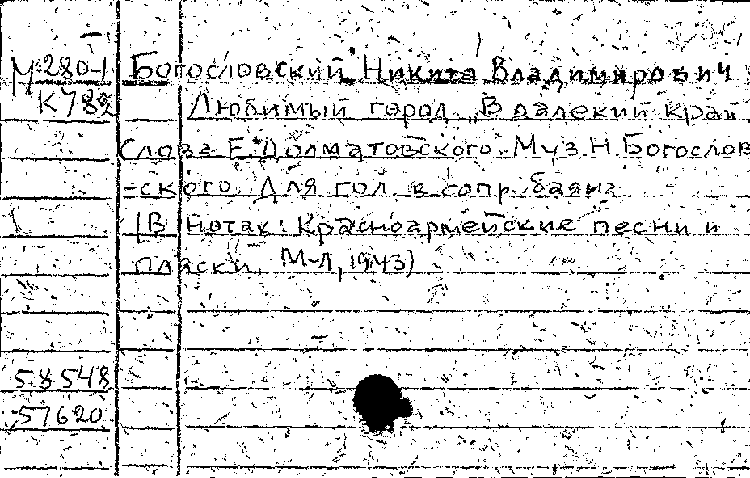 М280-1 Богословский Никита Владимирович
К782 Любимый город „В далекий край
Слова Е. Долматовского. Муз Н. Богослов
-ского. Для гол. в сопр. баяна
(В нотах: Красноармейские песни и
пляски. М-Л, 1943)
58548
57620